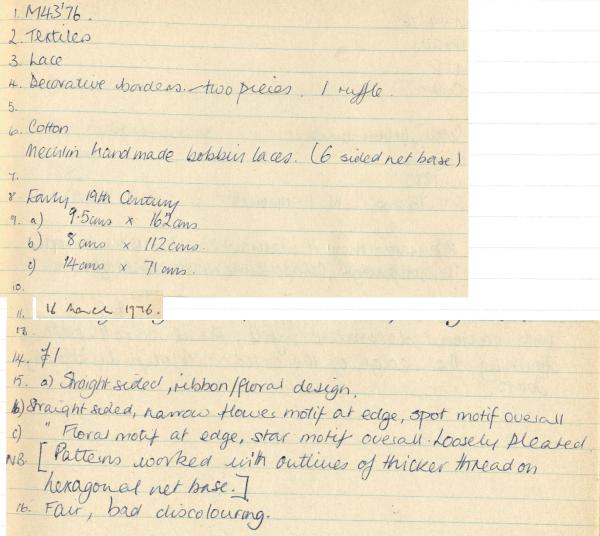 1. M43'76.
2. Textiles
3. Lace
4. Decorative borders. two pieces. 1 ruffle.
5.
6. Cotton
Mechlin handmade bobbin laces. (6 sided net base)
7.
8 Early 19th Century
9. a) 9.5cms x 162cms
b) 8cms x 112cms.
c) 14cms x 71cms.
10.
11. 16 March 1976.
13.
14. F1
15. a) Straight sided, ribbon/floral design.
b) Straight sided, narrow flower motif at edge, spot motif overall
c) " Floral motif at edge, star motif overall. Loosely pleated.
NB. [Patterns worked with outlines of thicker thread on
hexagonal net base.]
16. Fair, bad discolouring.